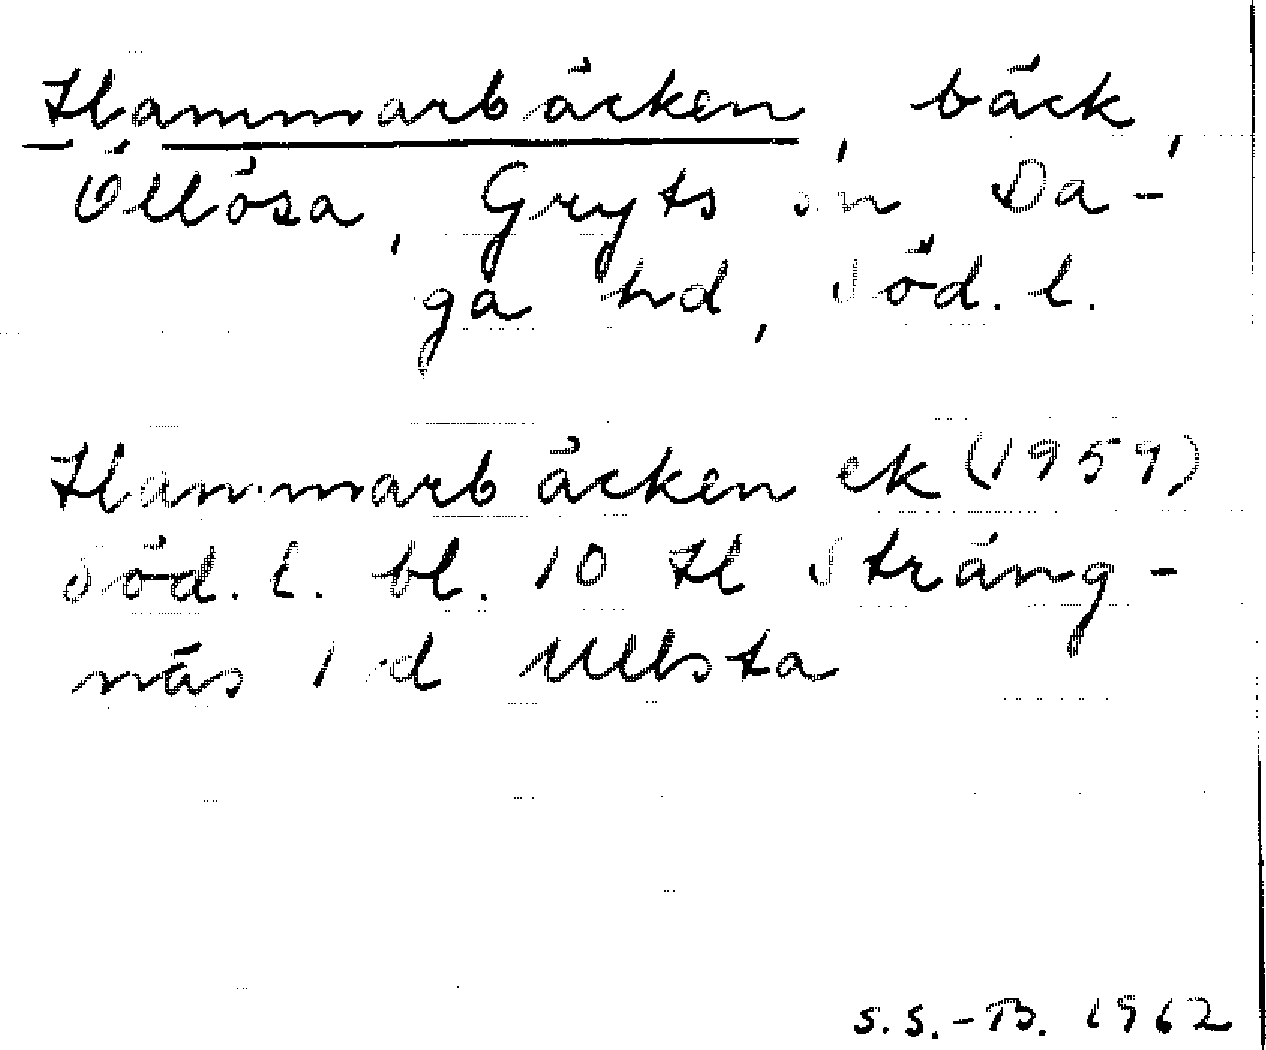 Hammarbäcken, bäck,
Öllösa, Gryts sn Da-
ga hd, Söd. l.
Hammarbäcken ek (1959)
Söd. l. bl. 10 H Sträng-
näs 1 d Ullsta
S.S.-B. 1962